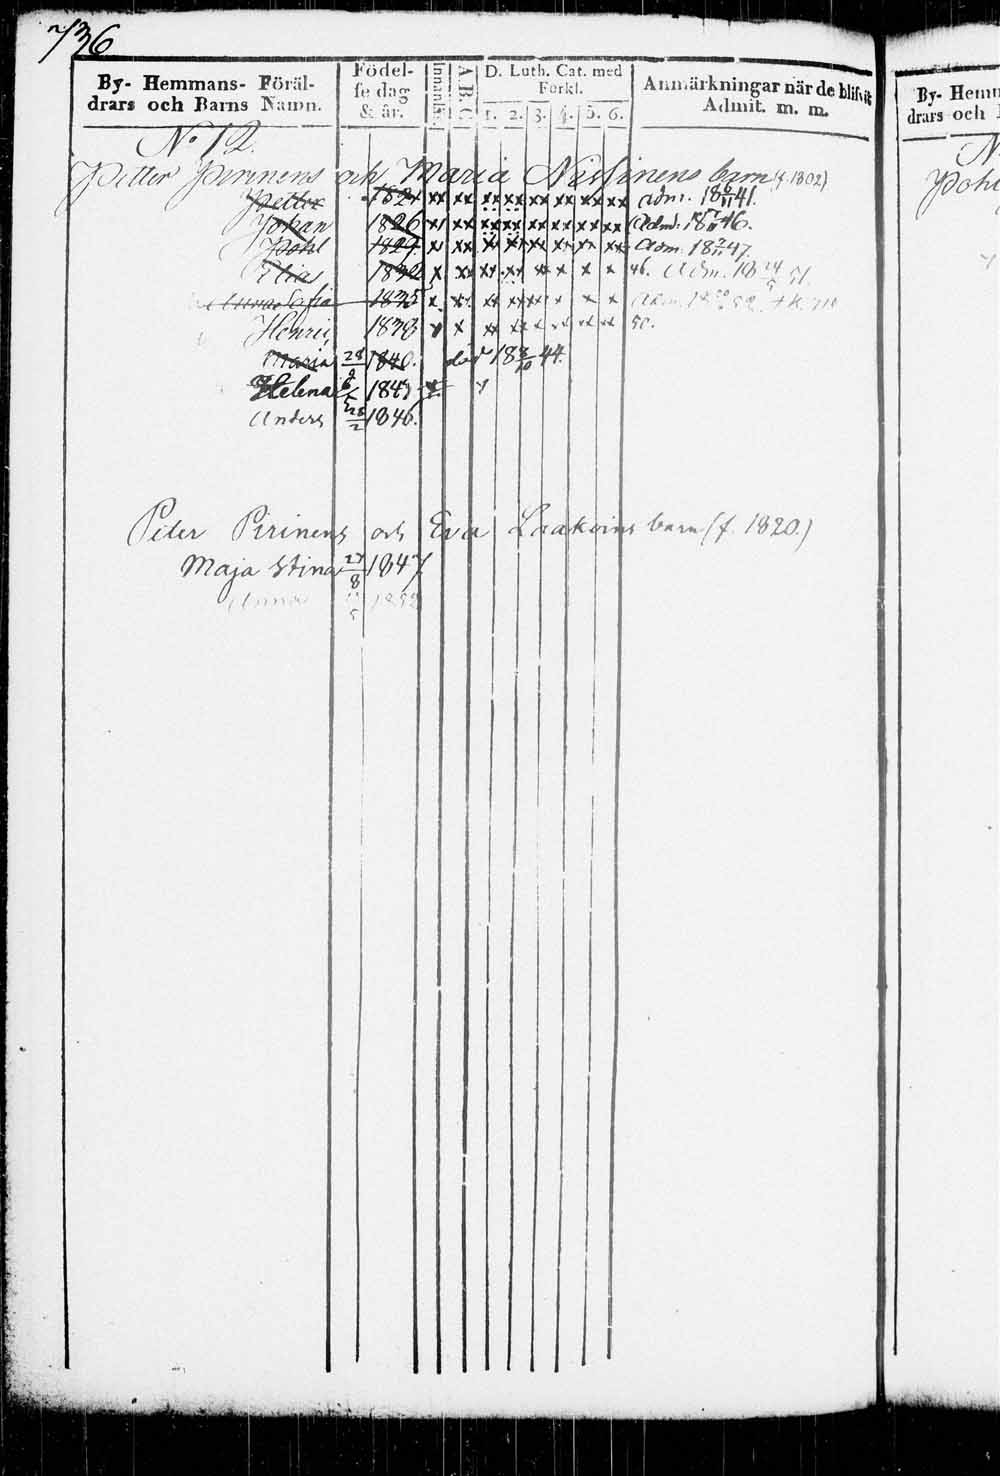 736
By- Hemmans- Föräl-
drars och Barns Namn.
Födel-
se dag
& år.
Innanläs.
A. B. C.
D. Luth. Cat. med
Forkl.
1. 2. 3. 4. 5. 6.
Anmärkningar när de blifvit
Admit. m. m.
By- Hem
drars och
No 12.
Petter Pirinens och Maria Nissinens barn (f. 1802)
Petter 1824 xx xx xx xx xx xx xx xx adm. 18 6/11 41.
Johan 1826 xx xx xx xx xx xx xx xx Adm. 18 46.
Pohl 1829. xx xx xx xx xx xx xx xx Adm. 18 47.
Elias 1832 x xx xx xx xx x x x 46. Adm. 18 24/5 51.
Sofia 1835 x xx xx xx xx x x x 52.
Henric 1838 x x xx xx x xx xx xx 50.
Maria 28/9 1840. död 18 8/10 44.
Helena 1843
Anders 28/2 1846.
Peter Pirinens och Eva Laakoins barn (f. 1820.)
Maja Stina 27/8 1847.
Anna 1852
Pohl